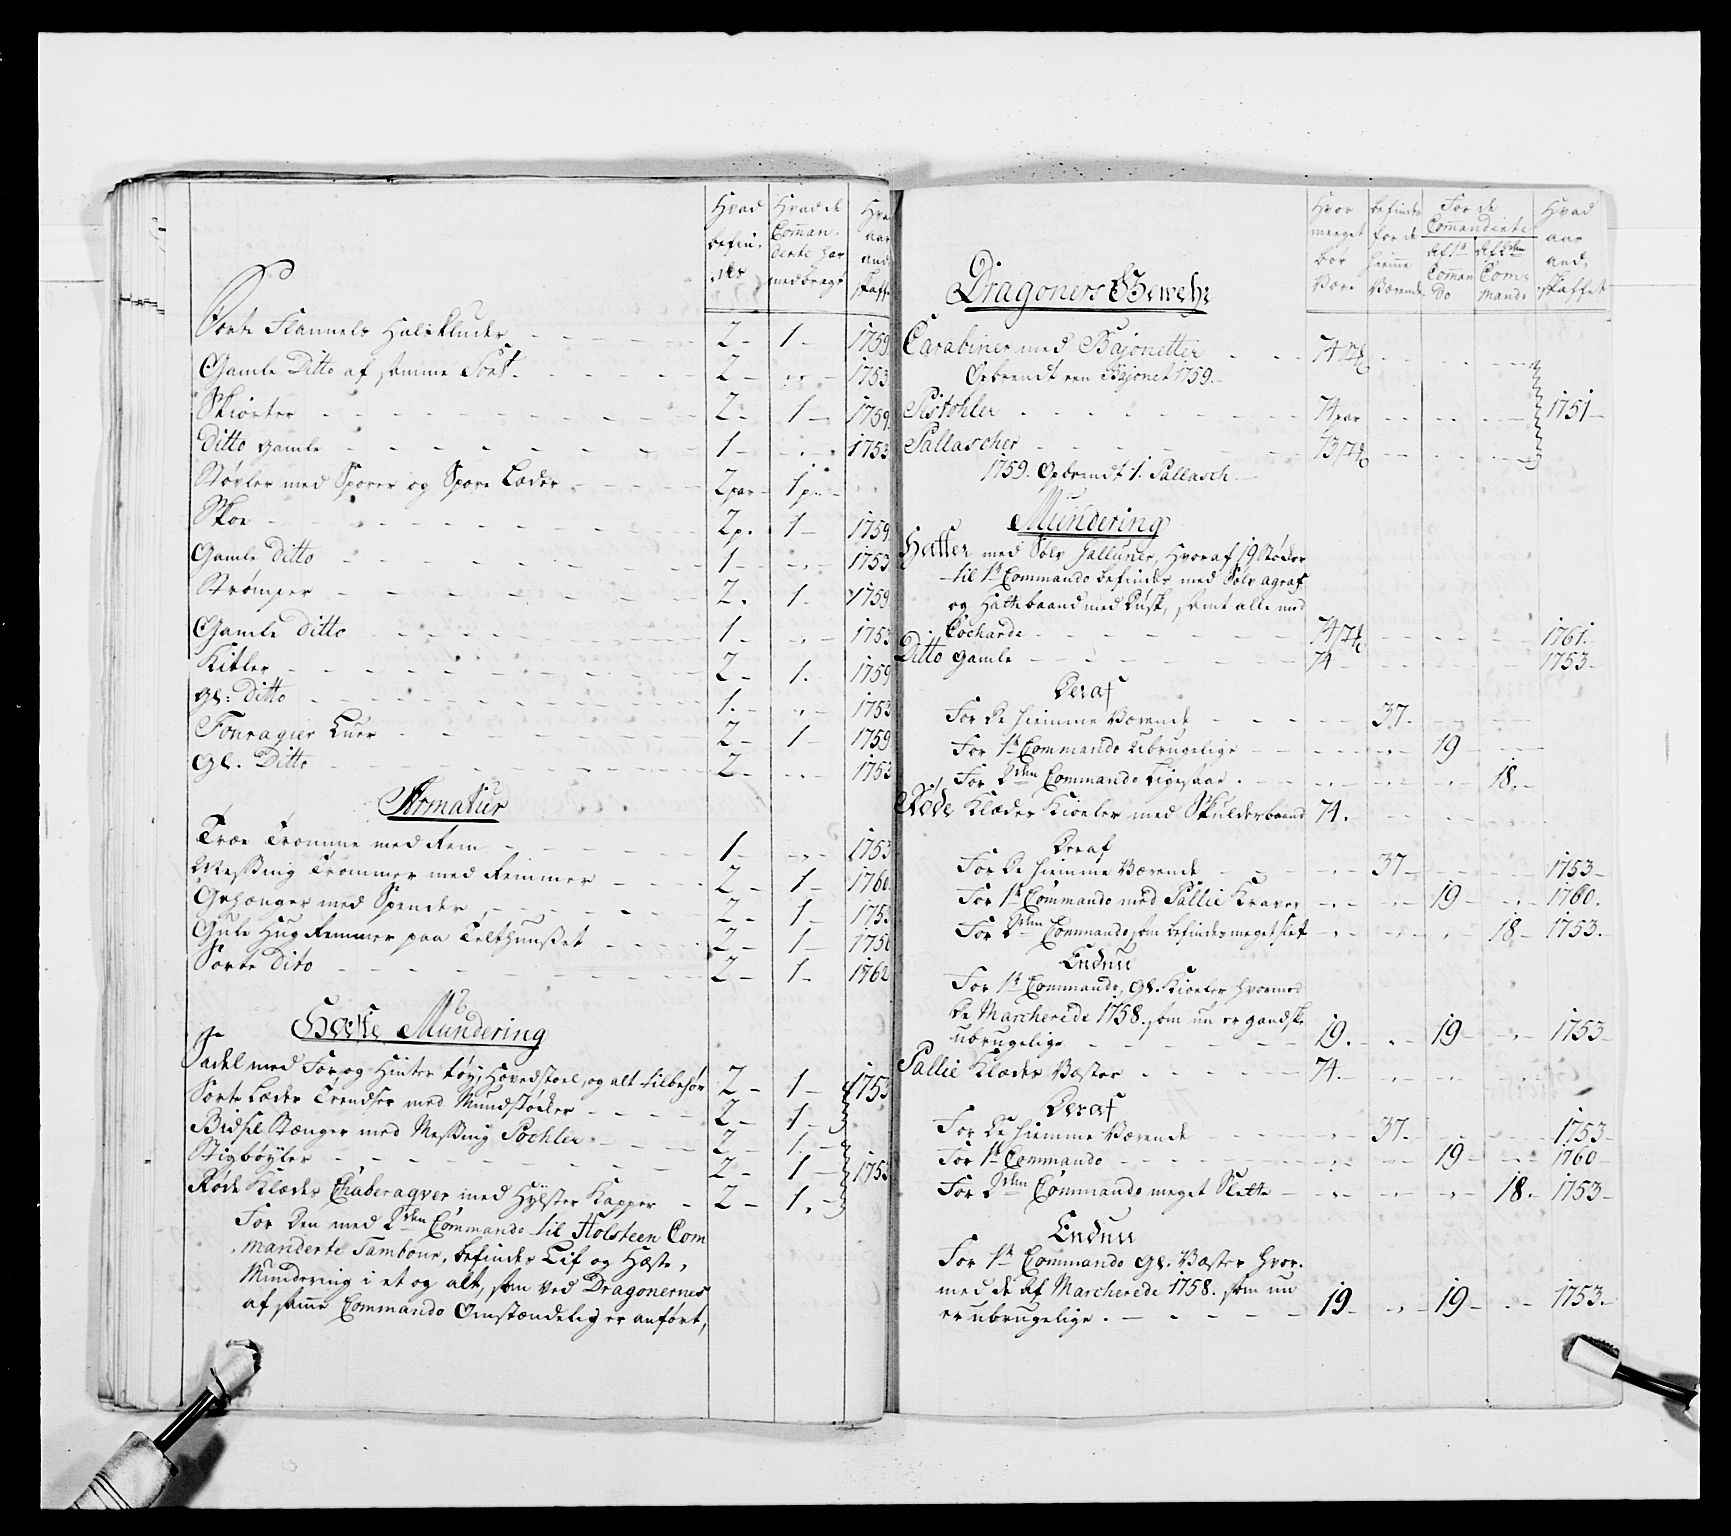 Hvad befin- des | Hvad de Comman- derte har medbragt | Hvad aar and skaff
Sorte Flannels Halsklude - 2 - 1 - 1759
Gamle Ditto af samme Sort - 2 - „ - 1753
Skiorter - 2 - 1 - 1759
Ditto gamle - 1 - „ - 1753
Støvler med Sporer og Spore Læder - 2 par - 1 p -
Skoe - 2 p. 1 - 1759
Gamle Ditto - 1 - „ - 1753
Strømper - 2. 1. 1759
Gamle Ditto - 1. „ - 1753
Kitler - 2 - 1. 1759
Gl: Ditto - 1. „ - 1753
Fouragier Luer - 2 - 1 - 1759
Gl. Ditto - 2 - „ - 1753
Armatur
Træe Tromme med Rem - 1 - „ - 1753
Messing Trommer med Remmer - 2 - 1 - 1760
Gehænger med Spender - 2 - 1 - 1753
Gule Hug Remmer paa Telthuuset - 2 - 1 - 1756
Sorte Dito - 2 - 1 - 1762
Hæste Mundering
Sadel med For og Hinter tøy, Hovedstoel, og alt tilbehør 2 - 1 - 1753
Sorte Læder Trendser med Mundstøcker - 2 - 1 -
Bidsel Stænger med Messing Pochler - 2 - 1 -
Stigbøyler - 2 - 1 - 1753
Røde Klædes Chaberaqver med Hylster Kapper - 2 - 1. -
For Den med 2den Commando til Holsteen Com
manderte Tambour, befindes Lif og Hæste,
Mundering i et og alt, som ved Dragonernes
af samme Commando Omstændelig er anført,
Hvor meeget bør Være | befindes for de hiemme Værende | For de Comanderte | af 1te Comman do | af 2den Com- mando | Hvad aar and- skaffet
Dragoners Gewehr
Carabiner med Bajonetter - 74
Opbrendt een Bajonet 1759.
Pistohler - 74 par - 1751 -
Pallascher - 73/74
1759. Opbrendt 1. Pallasch.
Mundering
Hatter med Sølv Galluner, Hvoraf 19 Støcker
til 1te Commando befindes med Sølv agraf
og Hattebaand med Dusk, samt alle med
Cocharde - 74/74 - 1761.
Ditto gamle - 74 - 1753 -
Deraf
For De hiemme Værende - 37.
For 1te Commando Ubrugelige - 19
For 2den Commando Ligesaae - 18. -
Røde Klædes Kioeler med Skulderbaand 74.
Deraf
For De hiemme Værende - 37 - 1753 -
For 1te Commando med Pallie Kraver - 19 - 1760.
For 2den Commando, som befindes meget slet - 18 - 1753.
Endnu
For 1te Commando, Gl. Kioeler hvormed
De Marcherede 1758. som nu er gandske
ubrugelige - 19. - 19 - 1753
Pallie Klædes Væster - 74. -
Deraf
For De hiemme Værende - 37. - 1753 -
For 1te Commando - 19 - 1760
For 2den Commando meget Slette - 18. 1753 -
Endnu
For 1te Commando Gl. Væster hvor-
med de af Marcherede 1758. som nu
er ubrugelige. - 19 - 19 - 1753. -